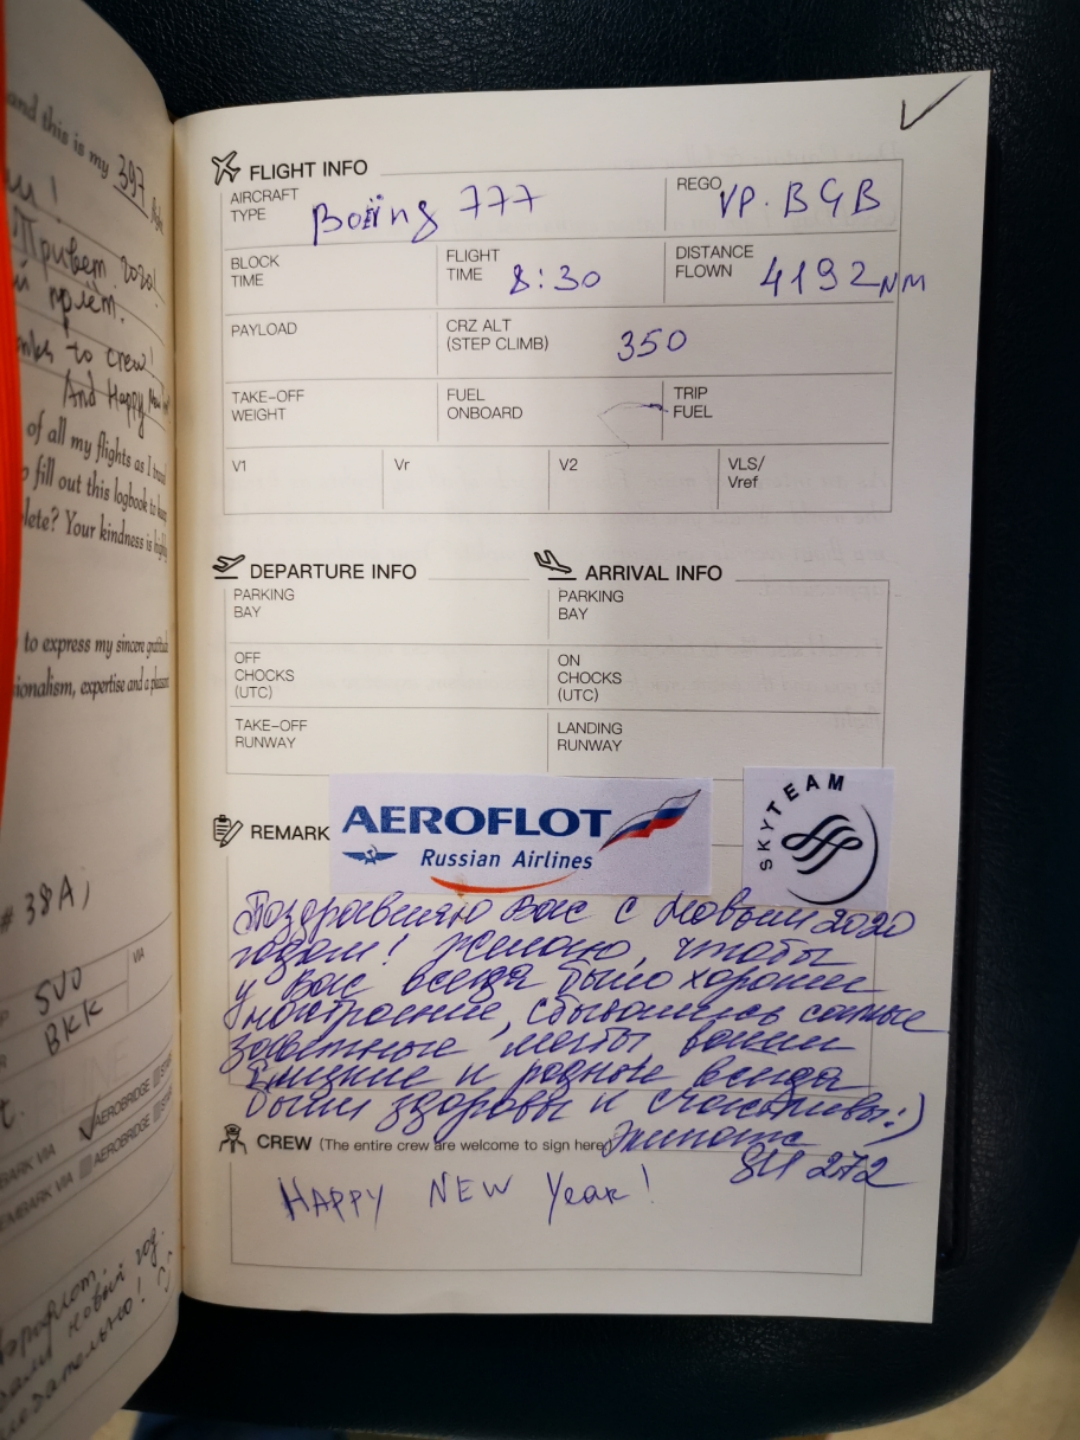 and this is my 397 flight
Привет 2020!
й полёт.
to crew!
And Happy New
of all my flights as I travel
fill out this logbook to keep
lete? Your kindness is highly
to express my sincere gratitude
ionalism, expertise and a pleasant
# 38A,
SVO
VIA
BKK
AEROBRIDGE
AEROBRIDGE
BARK VIA
EMBARK VIA
Аэрофлот.
новый год.
✓
FLIGHT INFO
AIRCRAFT TYPE Boeing 777
REGO VP.BGB
BLOCK TIME
FLIGHT TIME 8:30
DISTANCE FLOWN 4192NM
PAYLOAD
CRZ ALT (STEP CLIMB) 350
TAKE-OFF WEIGHT
FUEL ONBOARD
TRIP FUEL
V1
Vr
V2
VLS/ Vref
DEPARTURE INFO
ARRIVAL INFO
PARKING BAY
PARKING BAY
OFF CHOCKS (UTC)
ON CHOCKS (UTC)
TAKE-OFF RUNWAY
LANDING RUNWAY
REMARK
AEROFLOT
Russian Airlines
SKYTEAM
Поздравляю Вас с Новым 2020
годом! Желаю, чтобы
у Вас всегда было хорошее
настроение, сбывались самые
заветные мечты, ваши
близкие и родные всегда
были здоровы и счастливы:)
Экипаж
SU 272
CREW (The entire crew are welcome to sign here)
HAPPY NEW Year!